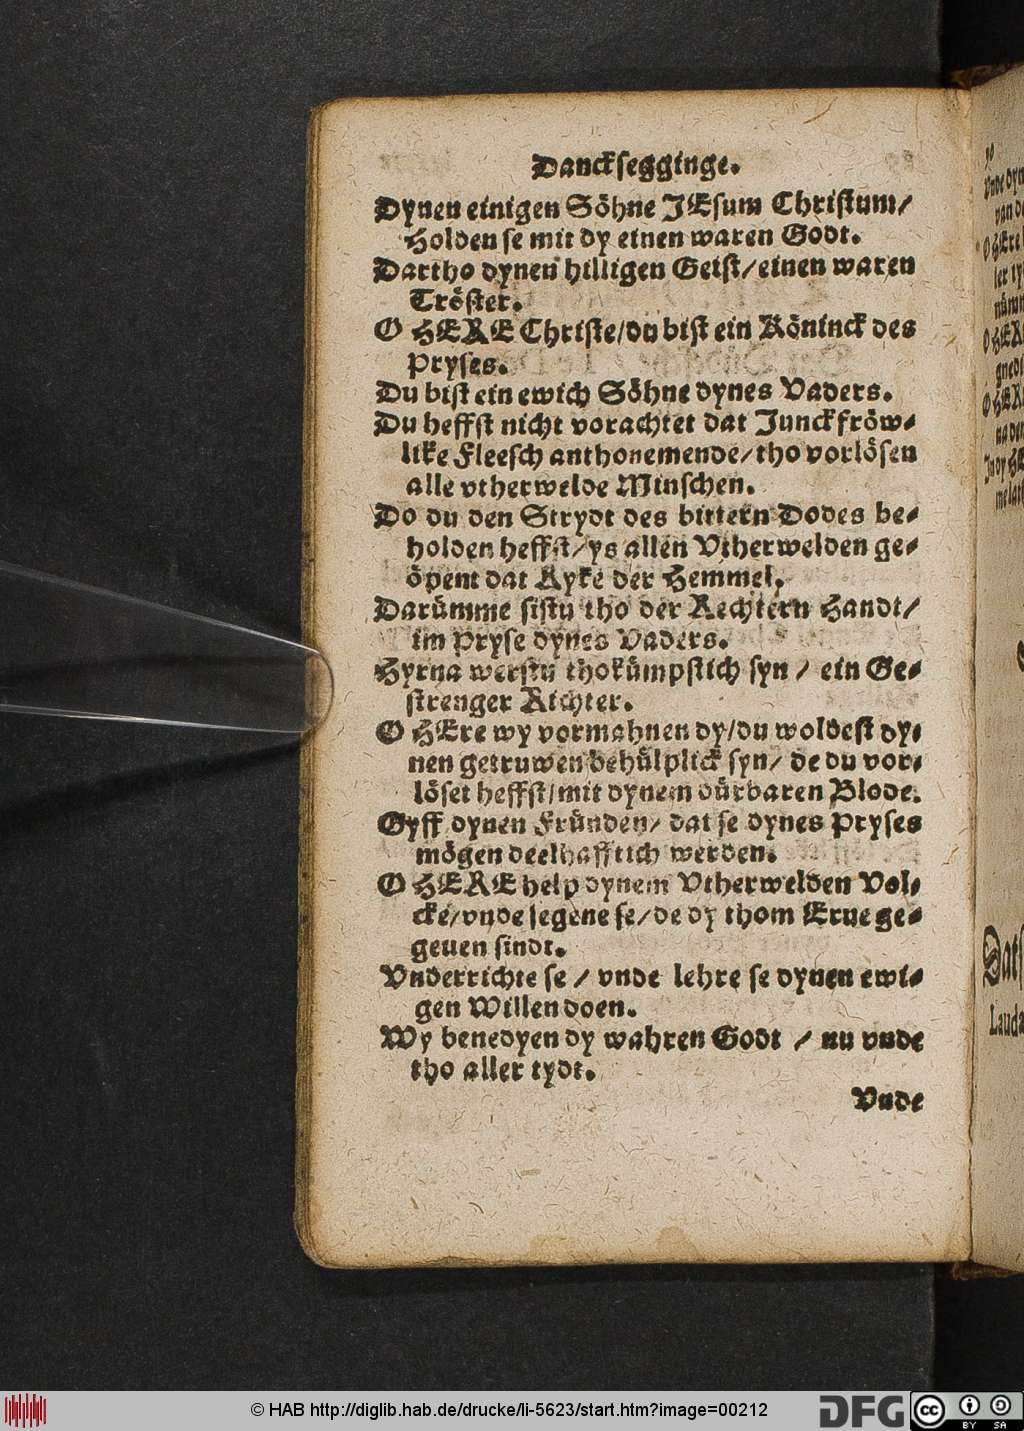 Danckſegginge.
Dynen einigen Söhne JEſum Chriſtum/
Holden ſe mit dy einen waren Godt.
Dartho dynen hilligen Geiſt/einen waren
Tröſter.
O HERE Chriſte/du biſt ein Köninck des
Pryſes.
Du biſt ein ewich Söhne dynes Vaders.
Du heffſt nicht vorachtet dat Junckfröw-
like Fleeſch anthonemende/tho vorlöſen
alle vtherwelde Minſchen.
Do du den Strydt des bittern Dodes be-
holden heffſt/ys allen Vtherwelden ge-
öpent dat Ryke der Hemmel.
Darümme ſiſtu tho der Rechtern Handt/
im Pryſe dynes Vaders.
Hyrna werſtu thokümpſtich ſyn / ein Ge-
ſtrenger Richter.
O HEre wy vormahnen dy/du woldeſt dy-
nen getruwen behülplick ſyn/ de du vor-
löſet heffſt/mit dynem dürbaren Blode.
Gyff dynen Fründen/ dat ſe dynes Pryſes
mögen deelhafftich werden.
O HERE help dynem Vtherwelden Vol-
cke/vnde ſegene ſe/de dy thom Erue ge-
geuen ſindt.
Vnderrichte ſe / vnde lehre ſe dynen ewi-
gen Willen doen.
Wy benedyen dy wahren Godt / nu vnde
tho aller tydt.
Vnde
© HAB http://diglib.hab.de/drucke/li-5623/start.htm?image=00212
DFG
cc BY SA